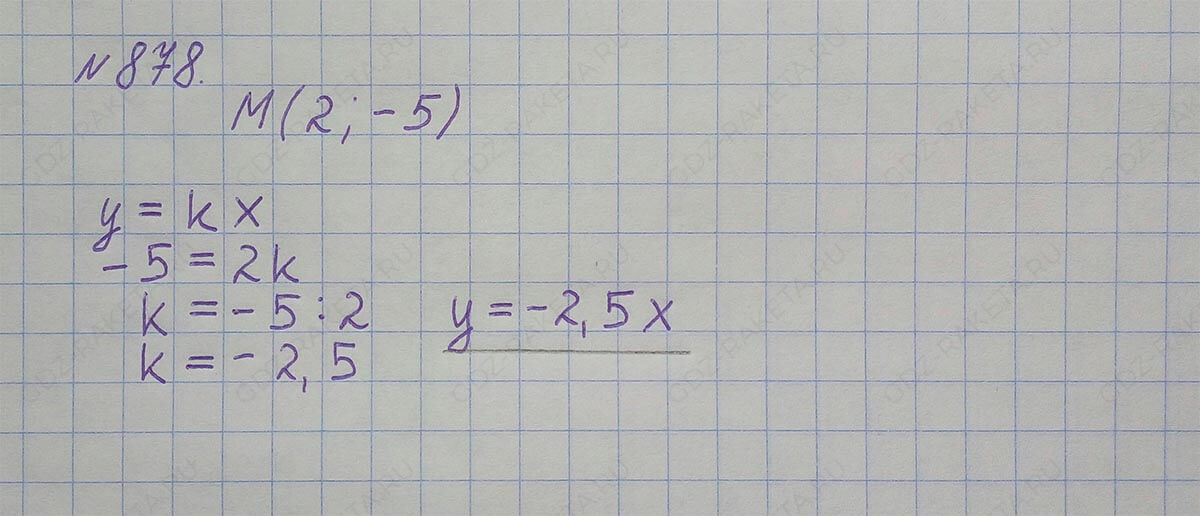 № 878.
M(2; -5)
y = kx
-5 = 2k
k = -5 : 2
k = -2,5
y = -2,5x
GDZ-RAKETA.RU